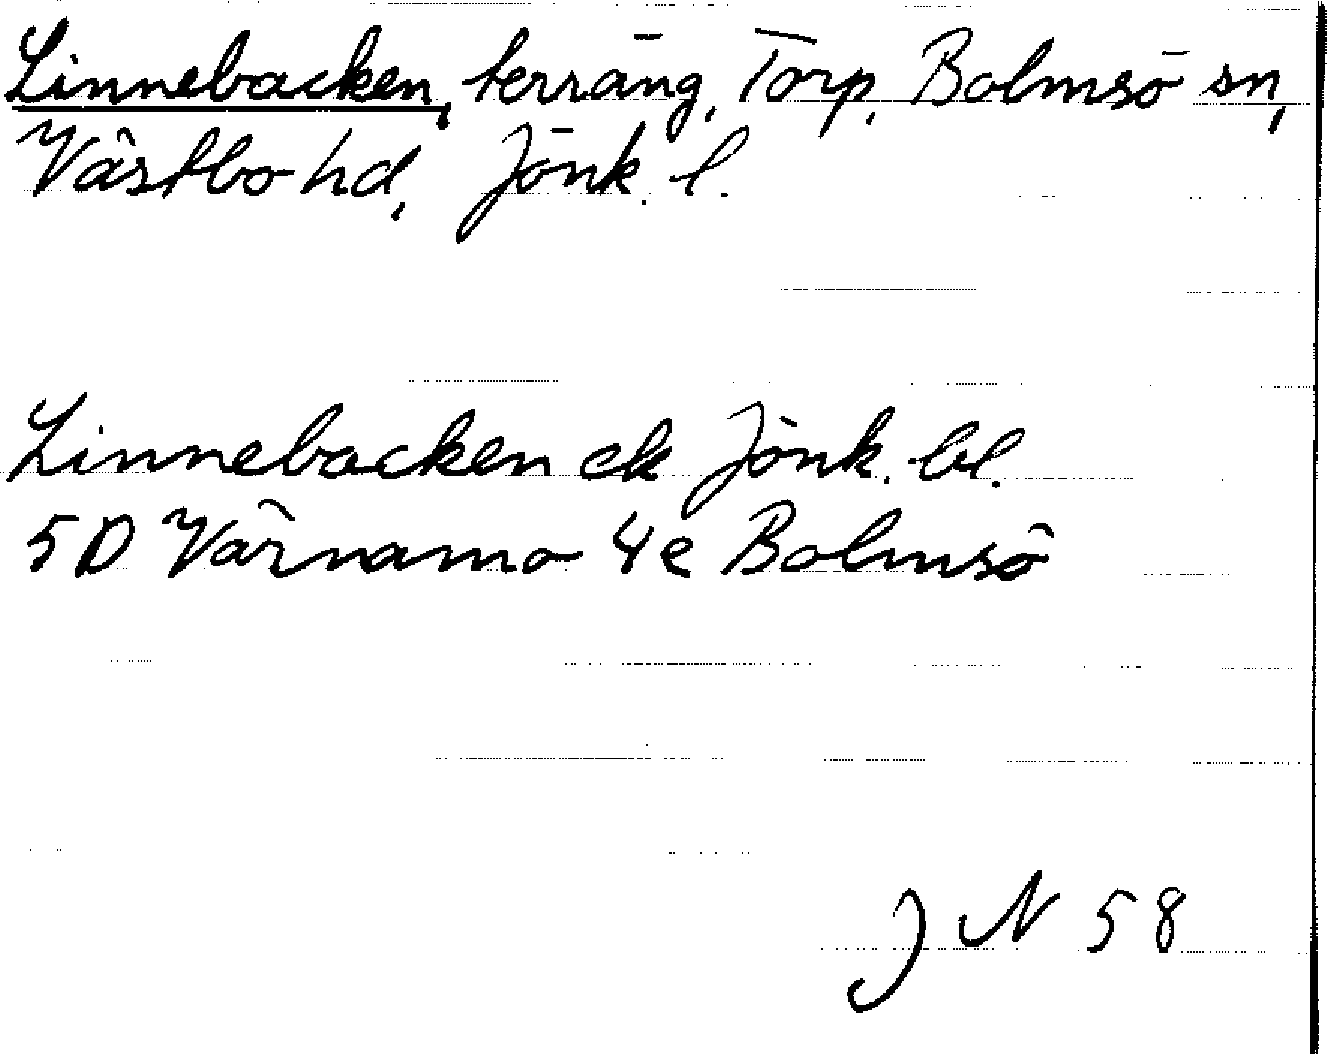 Linnebacken, terräng, Torp, Bolmsö sn,
Västbo hd, Jönk. l.
Linnebacken ek Jönk. bl.
5D Värnamo 4e Bolmsö
J N 58